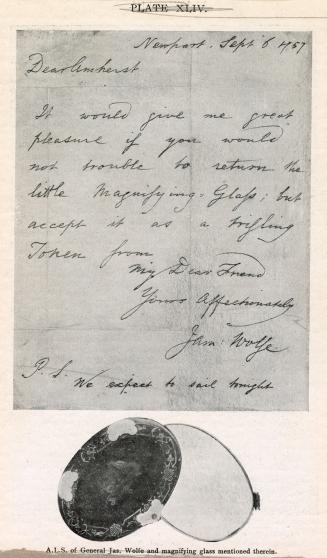 PLATE XLIV.
Newport. Sept 6 1757
Dear Amherst
It would give me great
pleasure if you would
not trouble to return the
little Magnifying=Glass; but
accept it as a trifling
Token from
My Dear Friend
Yours Affectionately
Jam: Wolfe
P.S. We expect to sail tonight
A.L.S. of General Jas. Wolfe and magnifying glass mentioned therein.